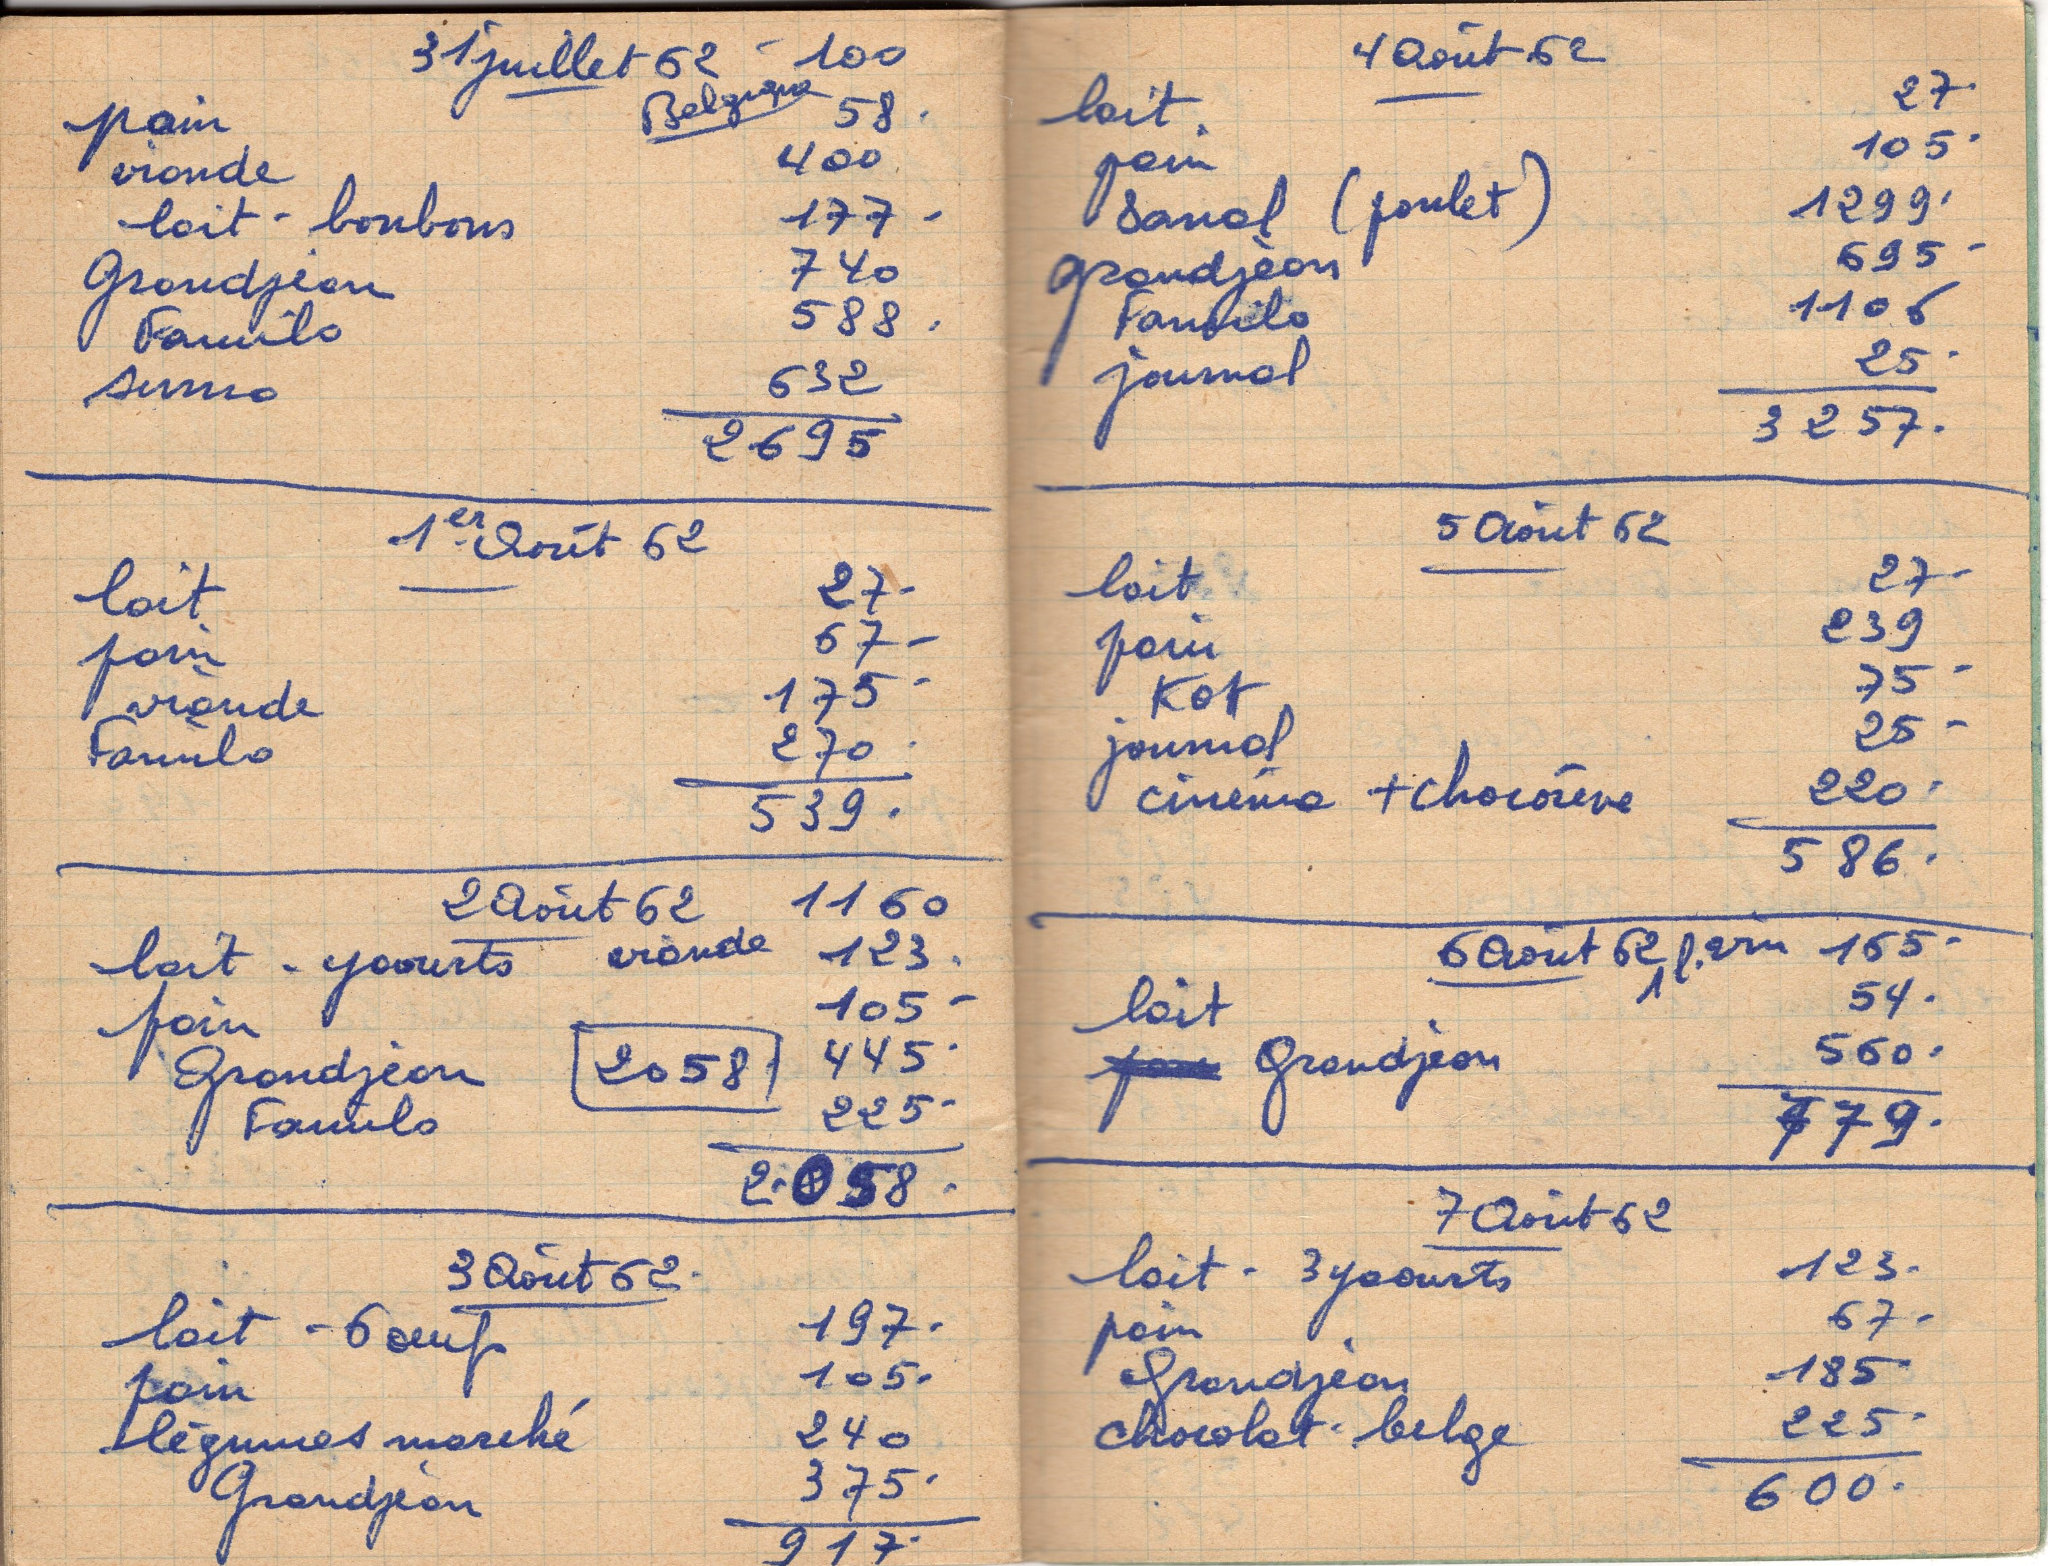 31 juillet 62 - 100
Belgique
pain 58.
viande 400
lait - bonbons 177 -
Grandjean 740
Familo 588.
suma 632
2695
1er Août 62
lait 27-
pain 67-
viande 175-
Familo 270.
539.
2 Août 62 1160
lait - yaourts viande 123.
pain 105-
Grandjean 2058 445.
Familo 225-
2.058.
3 Août 62.
lait - 6 oeufs 197.
pain 105.
légumes marché 240
Grandjean 375.
917.
4 Août 62
lait. 27.
pain 105.
Sanal (poulet) 1299.
Grandjean 695-
Familo 1106
journal 25.
3257.
5 Août 62
lait 27-
pain 239
Kot 75-
journal 25-
cinéma + chocorêve 220.
586.
6 Août 62 1 l. vin 165-
lait 54.
Grandjean 560.
779.
7 Août 62
lait - 3 yaourts 123.
pain 67-
Grandjean 185-
chocolat-belge 225-
600.